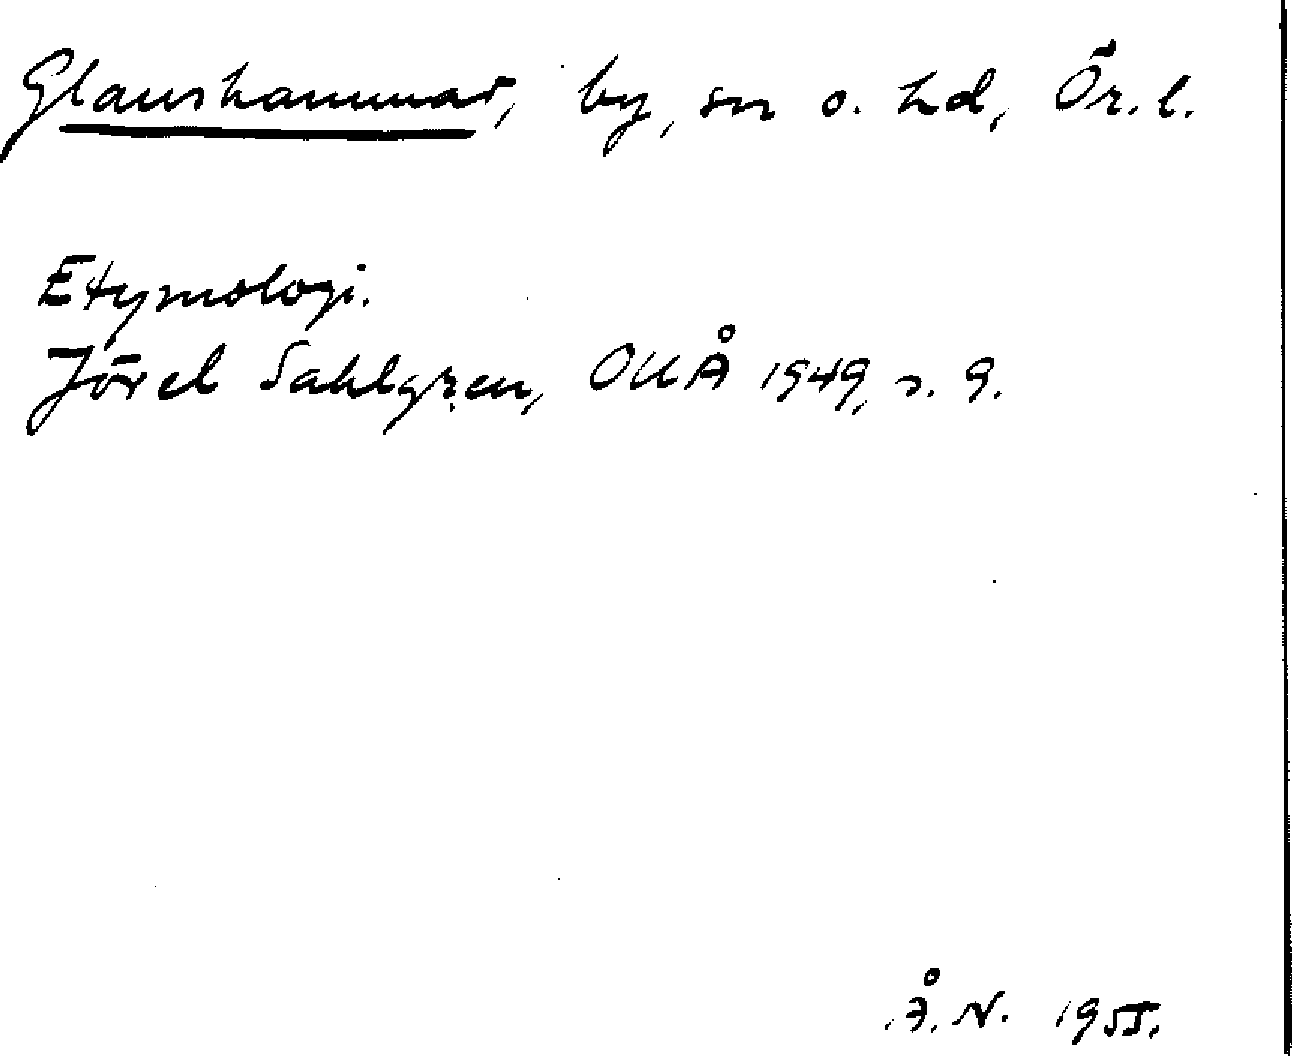 Glanshammar, by, sn o. hd, Ör. l.
Etymologi.
Jöran Sahlgren, OUÅ 1949, s. 9.
Å. N. 1955.